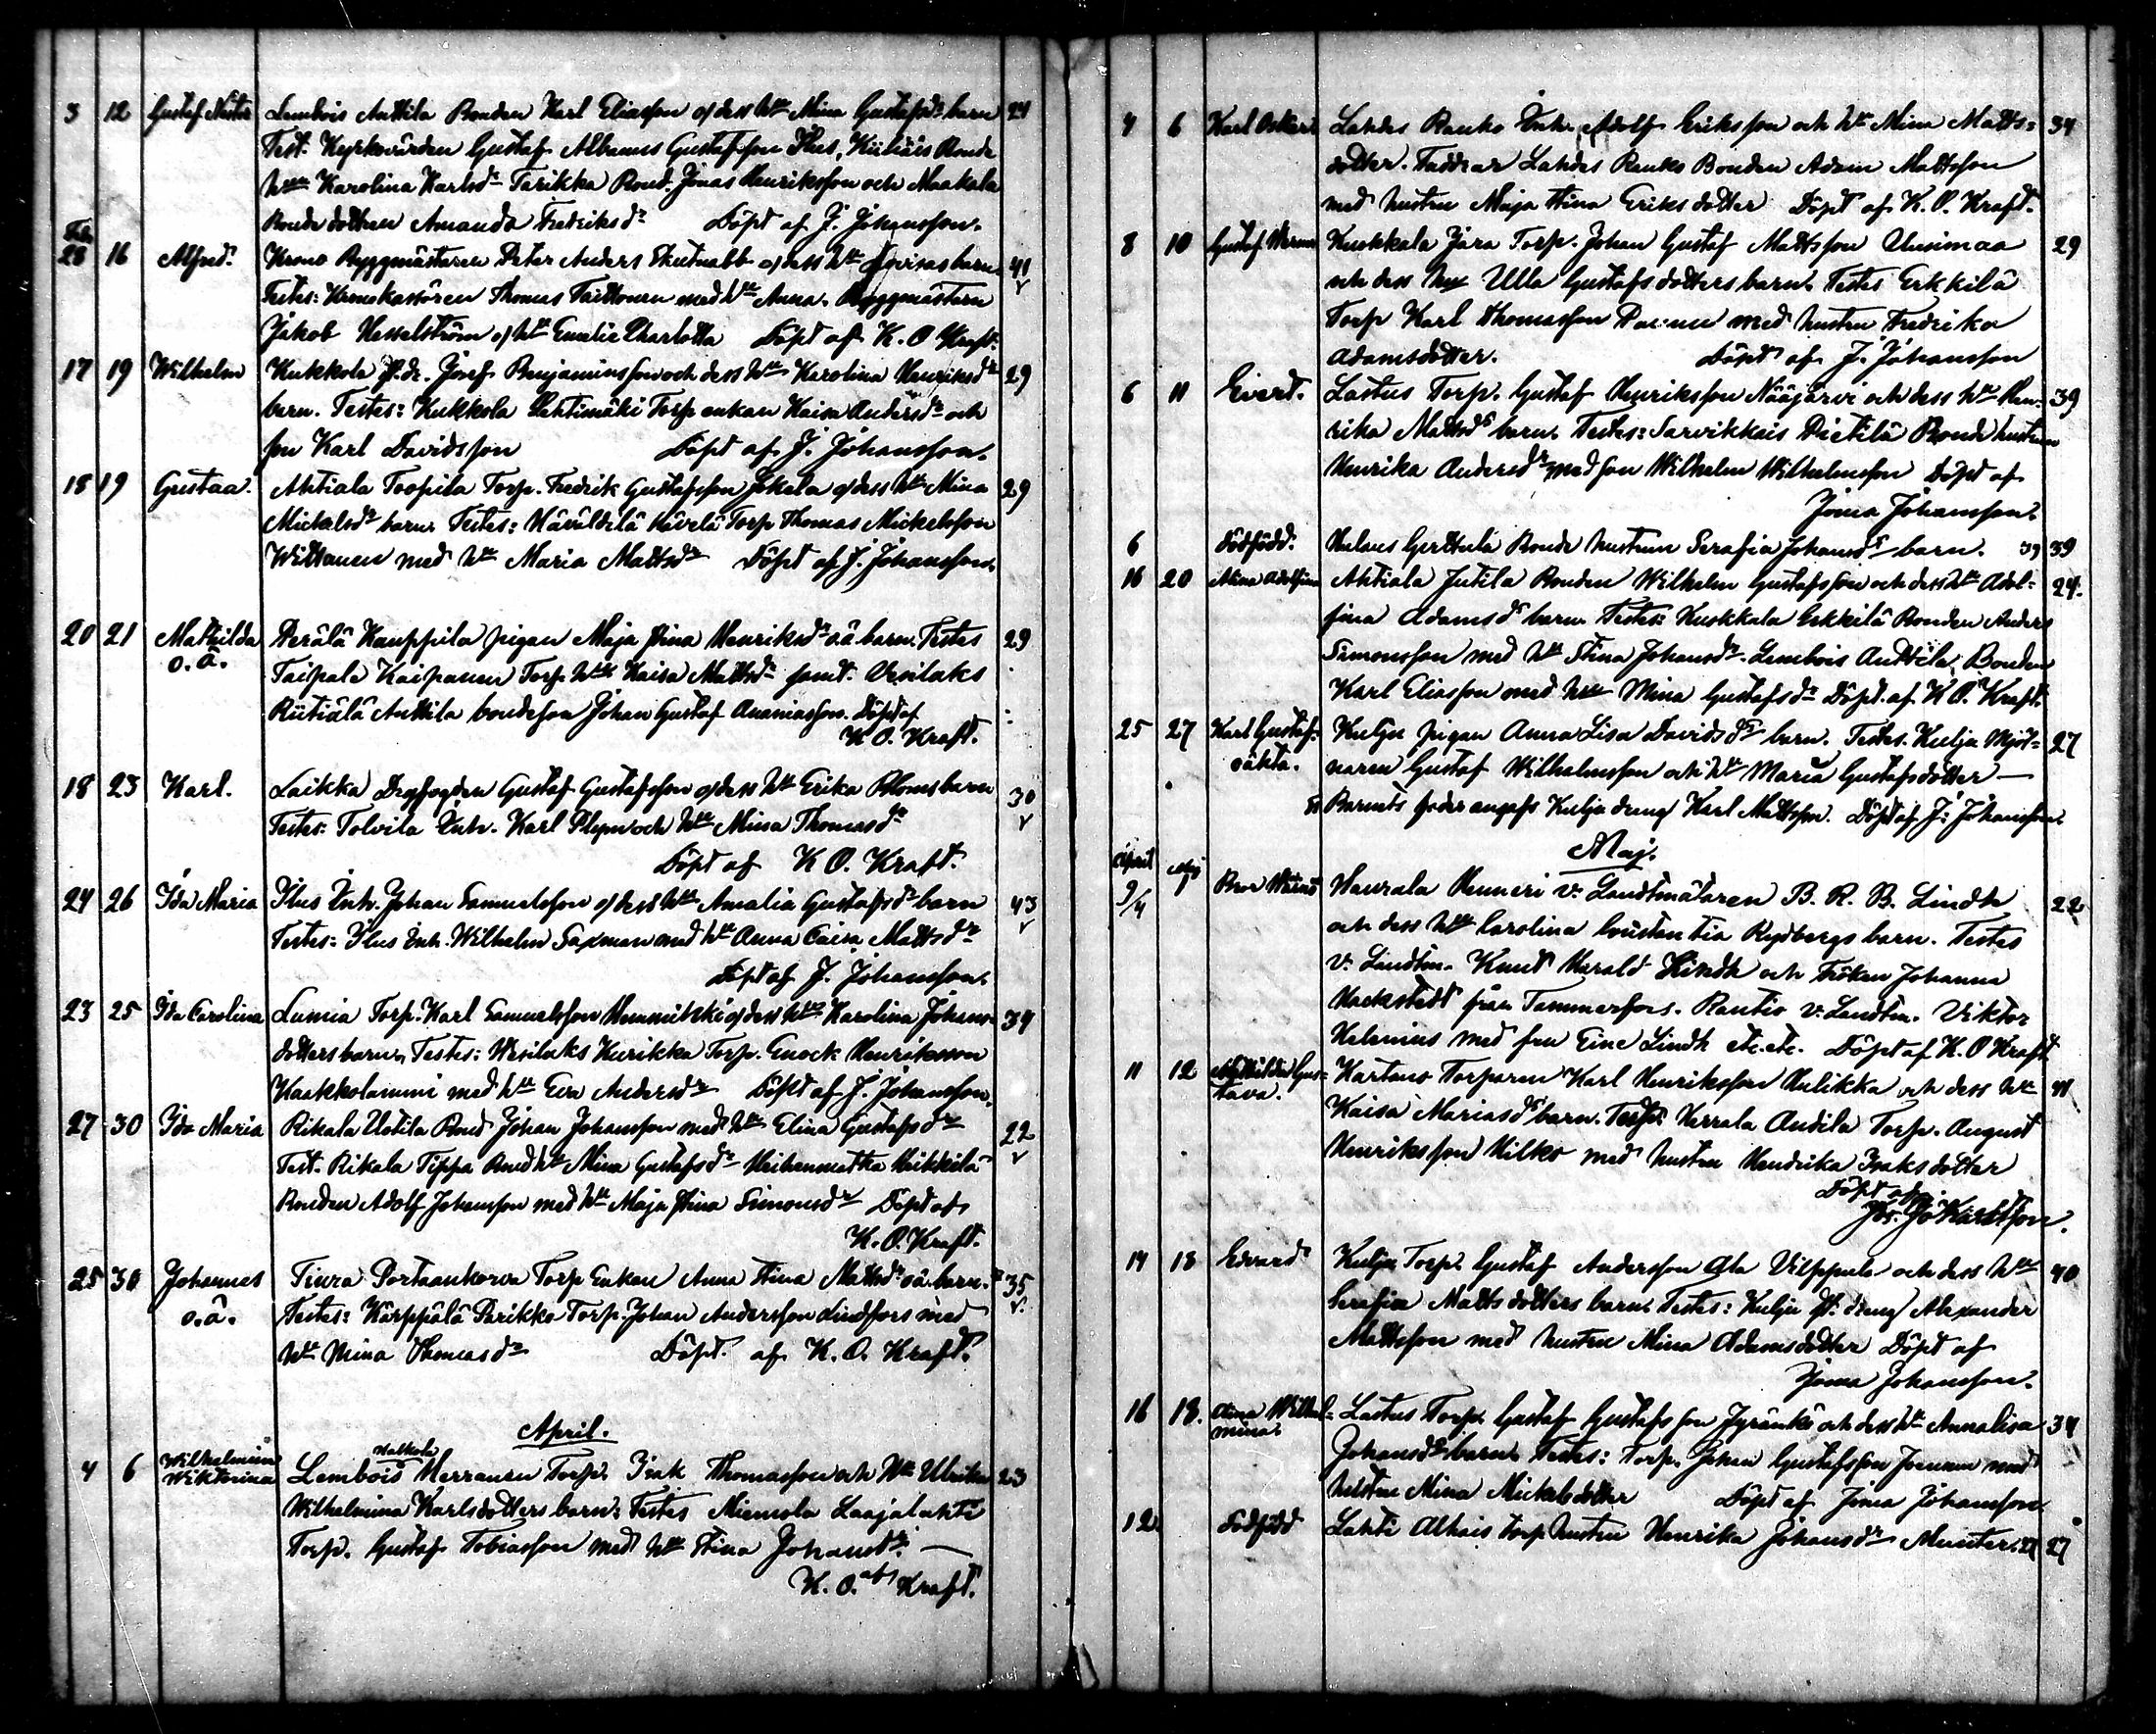 3 12 Gustaf Nestor Lembois Anttila Bonden Karl Eliasson o/dess h:u Mina Gustafsd:r barn 24
Test. Kyrkovärden Gustaf Albanus Gustafsson Ylus, Bonde
h:un Karolina Karlsd:r Tarikka Bond. Jonas Henriksson och Maakala
Bonde dottren Amanda Fredriksd:r Döpt af J. Johansson.
Feb.
28 16 Alfred. Krono Byggmästaren Peter Anders o/dess h:u barn 41
Testes: Thomas Taittonen med h:u Anna. Byggmästarn
Jakob Hesselström o/h:u Emelie Charlotta Döpt af K. O Kraft.
17 19 Wilhelm Kukkola P.dr. Josef Benjaminsson och dess h:u Karolina Henriksd:r 29
barn. Testes: Kukkola Lehtimäki Torp enkan Kaisa Andersd:r och
son Karl Davidsson Döpt af J. Johansson.
18 19 Gustaa. Ahtiala Toopila Torp. Fredrik Gustafsson Jokela o/dess h:u Mina 29
Mickelsd:r barn. Testes: Kävelä Torp Thomas Mickelsson
Wittanen med h:u Maria Mattsd:r Döpt af J. Johansson.
20 21 Mathilda Perälä Kauppila pigan Maja Stina Henriksd:r o.ä. barn. Testes 29
o.ä. Taipale Kaiponen Torp h:u Kaisa Mattsd:r samt. Vesilaks
Riitiälä Anttila bondeson Johan Gustaf Ananiasson. Döpt af
K O. Kraft.
18 23 Karl. Laikka Gustaf Gustafsson o/dess h:u Erika Bloms barn 30
Testes: Tolvila Inh. Karl Plym och h:u Mina Thomasd:r
Döpt af K O. Kraft.
24 26 Ida Maria Ylus Inh. Johan Samuelsson o/dess h:u Amalia Gustafsd:r barn 43
Testes: Ylus Inh. Wilhelm Saxman med h:u Anna Caisa Mattsd:r
Döpt af J. Johansson.
23 25 Ida Carolina Lumia Torp. Karl Samuelsson o/dess h:u Karolina Johans- 34
dotters barn. Testes: Wesilaks Kurikka Torp. Enock Henriksson
Kaakkolammi med h:u Eva Andersd:r Döpt af J. Johansson.
27 30 Ida Maria Rikala Uotila Bond Johan Johansson med h:u Elina Gustafsd:r 22
Test. Rikala Tippa Bond h:u Mina Gustafsd:r Heikkilä
Bonden Adolf Johansson med h:u Maja Stina Simonsd:r Döpt af
K. O. Kraft.
25 30 Johannes Tiura Portaankorva Torp Enkan Anna Stina Mattsd:r o.ä. barn. 35
o.ä. Testes: Kärppälä Parikka Torp. Johan Andersson Lindfors med
h:u Mina Thomasd:r Döpt. af K. O. Kraft.
April.
4 6 Wilhelmina Wiktorina Lembois Halkola Herranen Torp. Isak Thomasson och h:u Ulrika 23
Wilhelmina Karlsdotters barn. Testes Niemola Laajalahti
Torp. Gustaf Tobiasson med h:u Stina Johansd:r.
K. O. af Kraft.
4 6 Karl Oskar Lahdes Ranko Inh. Adolf Eriksson och h:u Mina Matts- 34
dotter. Faddrar Lahdes Ranko Bonden Adam Mattsson
med hustru Maja Stina Eriks dotter Döpt af K. O. Kraft.
8 10 Gustaf Kuokkala Jära Torp. Johan Gustaf Mattsson Uusimaa 29
och dess h:u Ulla Gustafs dotters barn. Testes Erkkilä
Torp Karl Thomasson med hustru Fredrika
Adamsdotter. Döpt af J. Johansson
6 11 Evert. Lastus Torp. Gustaf Henriksson Nääjärvi och dess h:u Hen- 39
rika Mattsd:r barn. Testes: Sarvikkais Pietilä Bonde hustrun
Henrika Andersd:r med son Wilhelm Wilhelmsson Döpt af
Joma Johansson.
6 Dödfödd. Hulaus Gerttula Bonde hustrun Serafia Johansd:r barn. 39 39
16 20 Alina Adolfina Ahtiala Jutila Bonden Wilhelm Gustafsson och dess h:u Adol- 24.
fina Adamsd:r barn. Testes: Kuokkala Erkkilä Bonden Anders
Simonsson med h:u Stina Johansd:r. Lembois Anttila Bonden
Karl Eliasson med h:u Mina Gustafsd:r Döpt. af K O. Kraft.
25 27 Karl Gustaf. Kulju pigan Anna Lisa Davidsd:r barn. Testes. Kulju Mjöl- 27
oäkta. naren Gustaf Wilhelmsson och h:u Maria Gustafsdotter —
Barnets fader angafs Kulju dräng Karl Mattsson. Döpt af J. Johansson.
Maj.
April Maj
9/4 1 Bror Haurala Henneri v. Landtmätaren B. R. B. Lindh 22
och dess h:u Carolina Constantia Rydbergs barn. Testes
v. Landtm. Knut Harald Lindh och Fröken Johanna
Hackstedt från Tammerfors. Rantio v. Landtm. Viktor
Helenius med fru Eine Lindh etc. etc. Döpt af K. O Kraft
11 12 Mathilda Gus- Kartano Torparen Karl Henriksson Hulikka och dess h:u 41
tava. Kaisa Mariasd:r barn. Testes Herrala Anttila Torp. August
Henriksson Hilko med hustru Hendrika Isaksdotter
Döpt af
Jos. Jo Karlsson.
14 18 Edvard Kulju Torp. Gustaf Andersson Ala Vilppula och dess h:u 40
Serafia Matts dotters barn. Testes: Kulju St. dräng Alexander
Mattsson med hustru Mina Adamsdotter Döpt af
Joma Johansson.
16 18. Alma Wilhel- Lastus Torp. Gustaf Gustafsson Jyränki och dess h:u Annalisa 34
mina. Johansd:r barn. Testes: Torp. Johan Gustafsson med
hustru Mina Mickelsdotter Döpt af Joma Johansson
12 Dödfödd Lahti Alhais Torp hustru Henrika Johansd:r Munter. 27 27